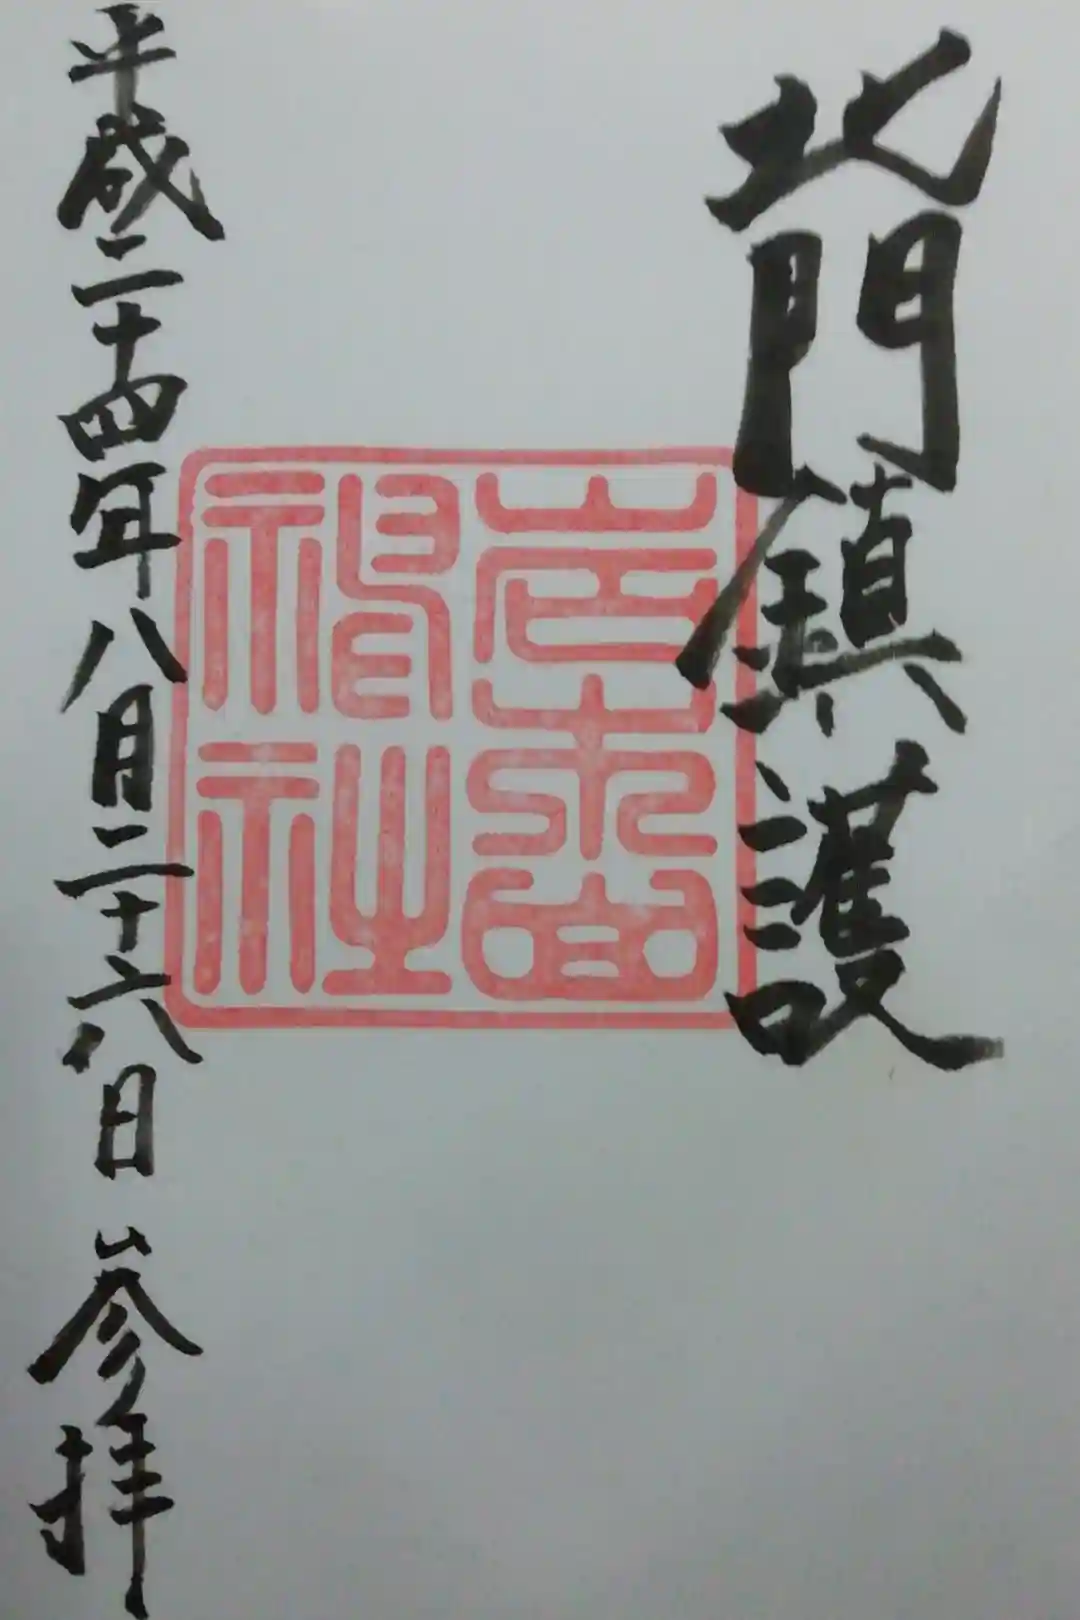 北門鎮護
岩木山
神社
平成二十四年八月二十六日 参拝